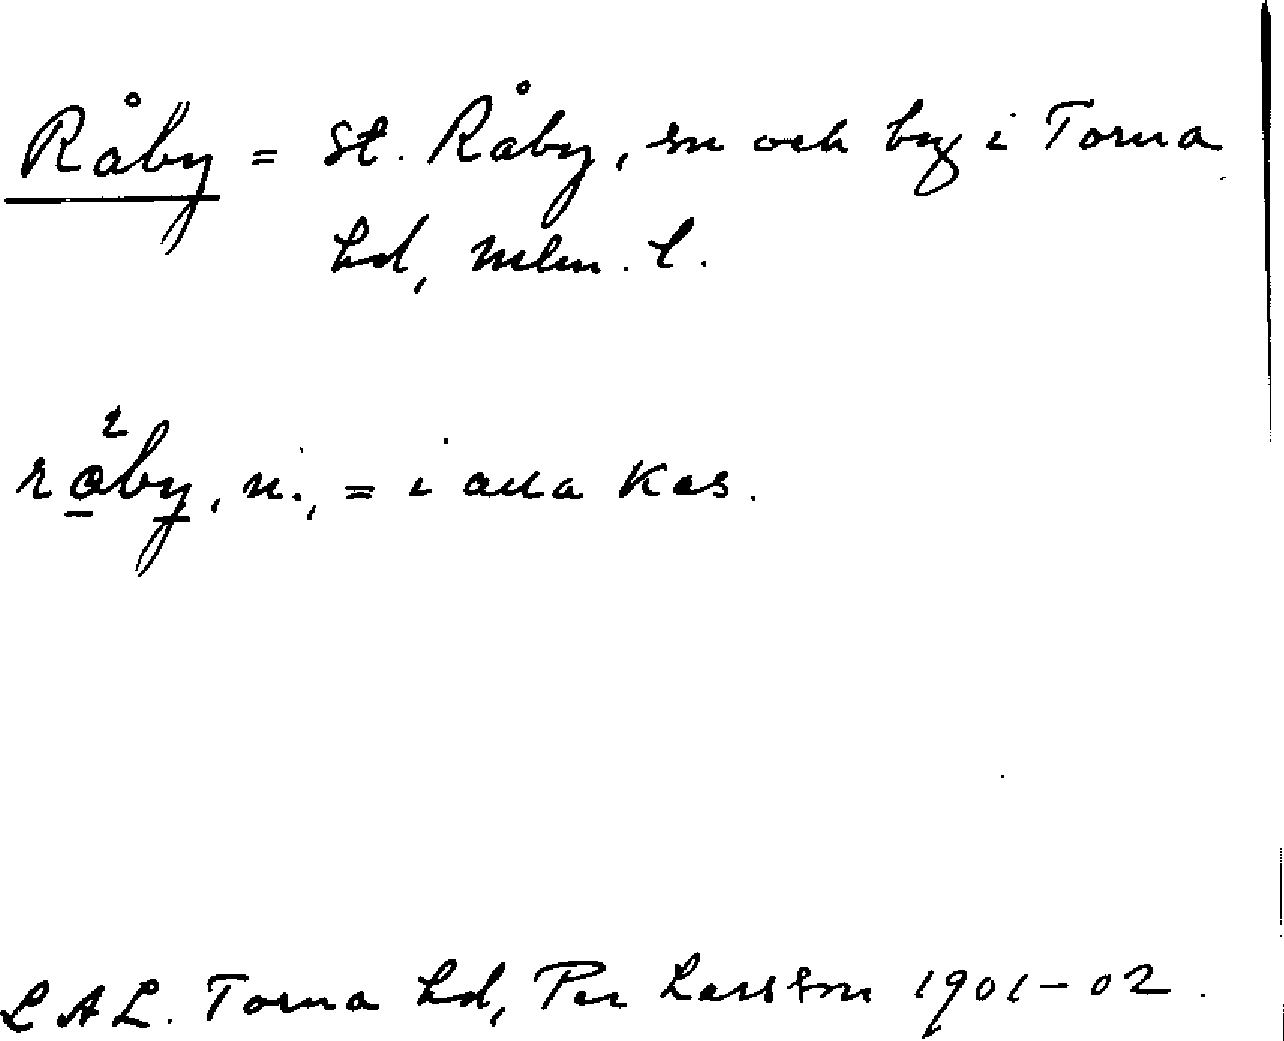 Råby = St. Råby, sn och by i Torna
hd, Mlm. l.
råby, n., = i alla Kas.
LAL. Torna hd, Per Larsson 1901-02.